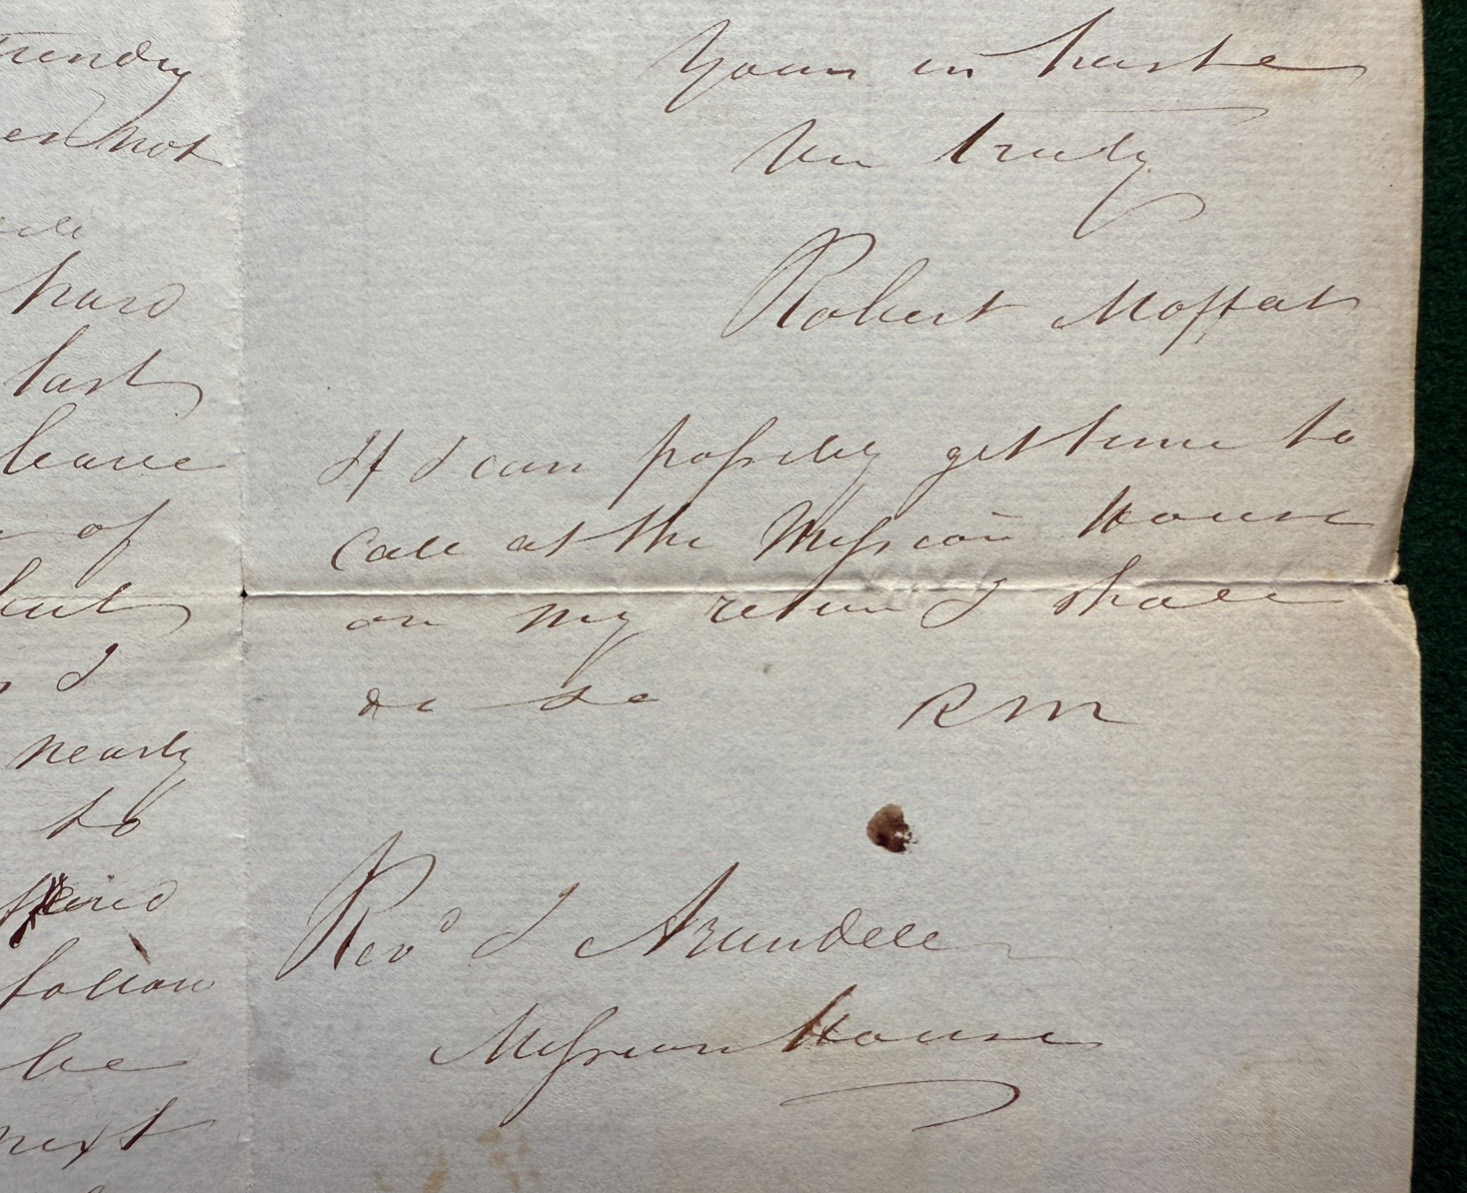 not
hard
last
leave
of
but
I
nearly
to
follow
be
next
Yours in haste
Very truly
Robert Moffat
If I can possibly get time to
call at the Mission House
on my return I shall
do so RM
Revd J Arundell
Mission House